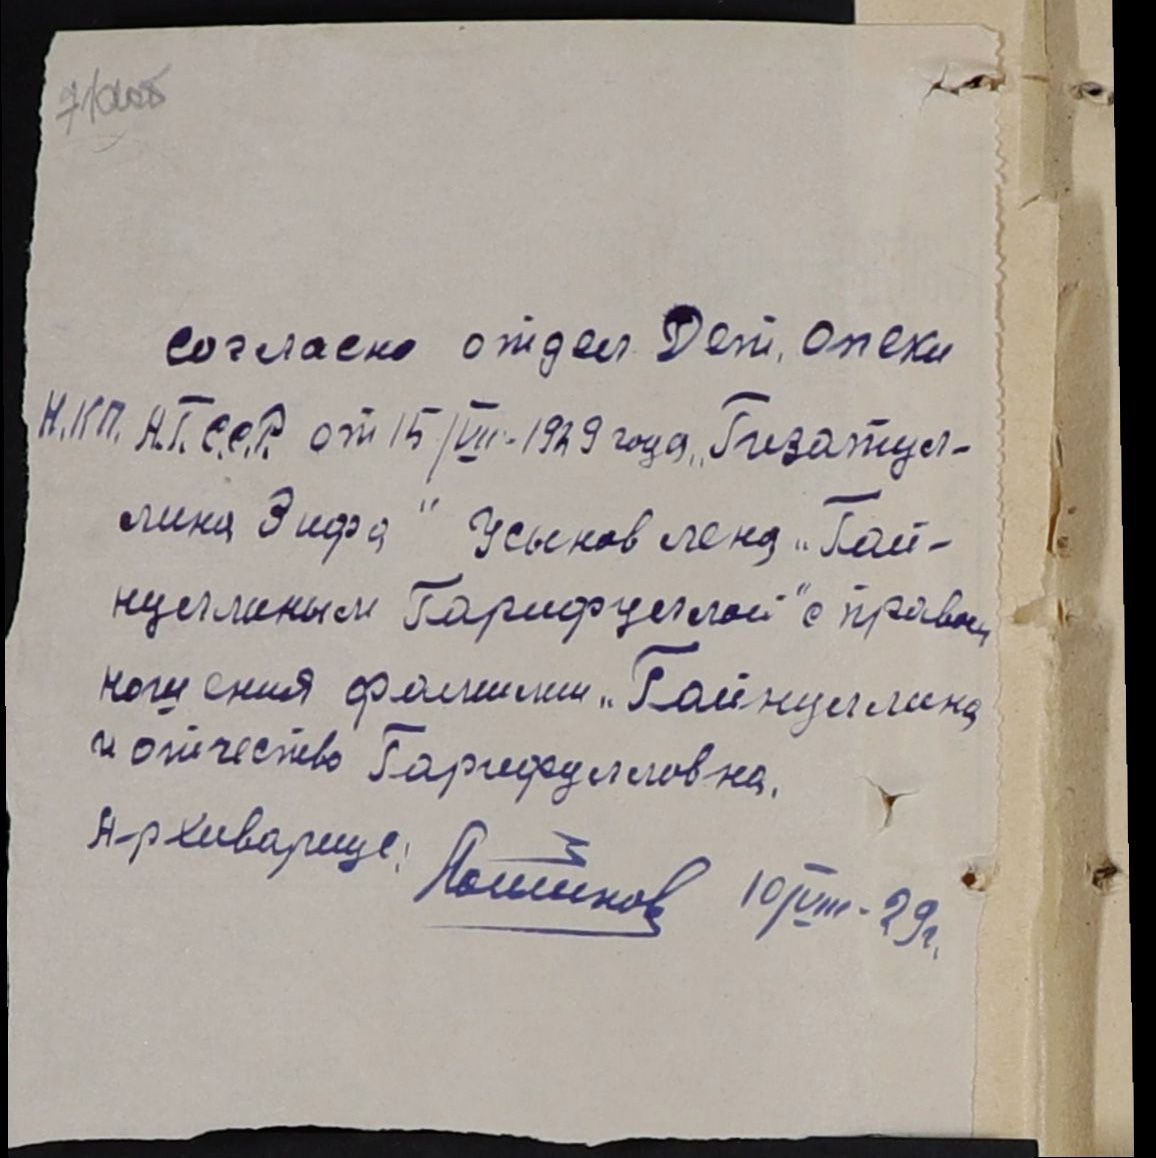 согласно отдел Дет. опеки
Н.КП. А.Т.С.С.Р. от 15/VIII-1929 года „Гизатул-
лина Зифа" Усыновлена „Гай-
нуллиным Гарифуллой" с правом
ношения фамилии „Гайнуллина
и отчество Гарифулловна.
Архивариус:
10/VIII-29г.